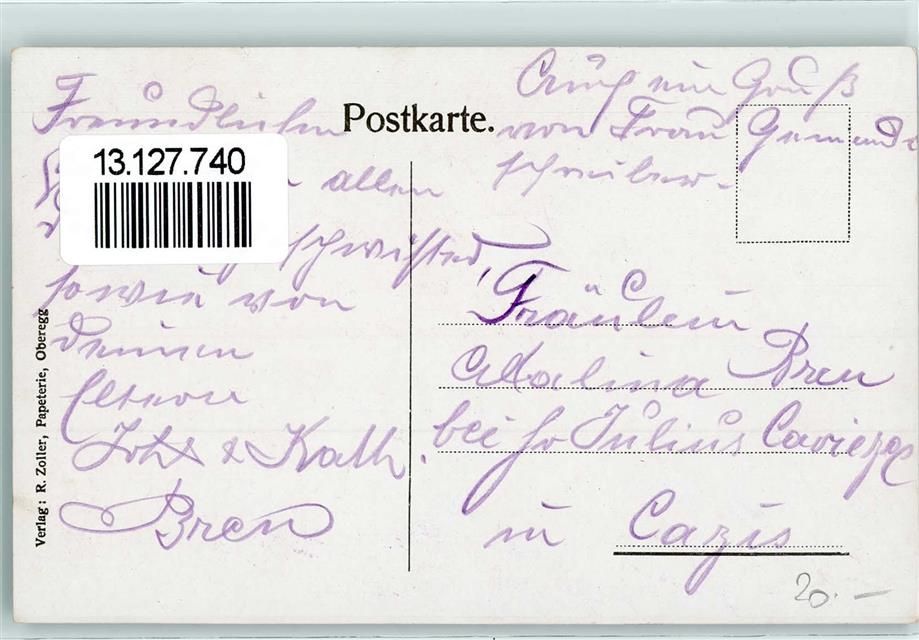 Postkarte.
Auch ein Gruß
von Frau Gemeind-
schreiber.
Freundlichen
13.127.740
allen
schwisted
sowie von
deinen
Eltern
Joh & Kath.
Bren
Fräulein
Adalina Bren
bei Hr Julius Caviezel
in Cazis
Verlag: R. Zoller, Papeterie, Oberegg
20.—